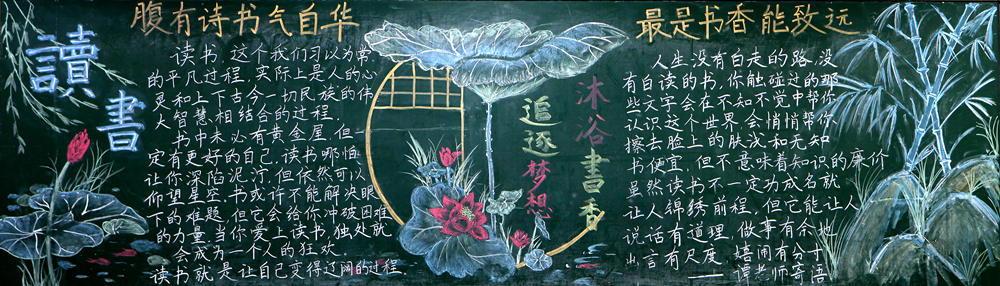 讀書
腹有诗书气自华
读书，这个我们习以为常
的平凡过程，实际上是人的心
灵和上下古今一切民族的伟
大智慧相结合的过程．
书中未必有黄金屋，但一
定有更好的自己．读书哪怕
让你深陷泥汀，但依然可以
仰望星空．书或许不能解决眼
下的难题，但它会给你冲破困难
的力量．当你爱上读书，独处就
会成为一个人的狂欢．
读书就是让自己变得辽阔的过程
追逐梦想
沐浴書香
最是书香能致远
人生没有白走的路，没
有白读的书，你触碰过的那
些文字会在不知不觉中帮你
认识这个世界，会悄悄帮你
擦去脸上的肤浅和无知．
书便宜，但不意味着知识的廉价
虽然读书不一定功成名就
让人锦绣前程，但它能让人
说话有道理，做事有余地
出言有尺度，嬉闹有分寸
——谭老师寄语